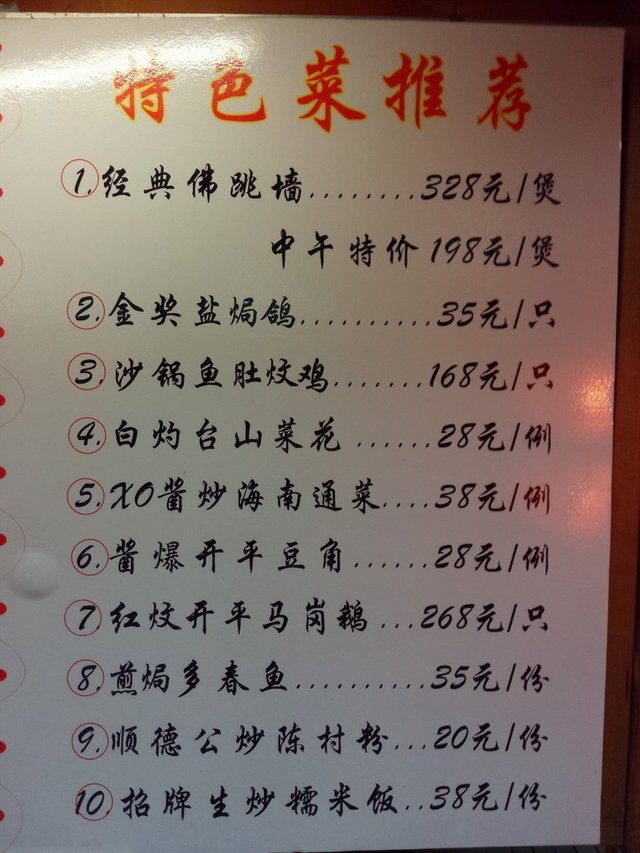 特色菜推荐
1.经典佛跳墙........328元/煲
中午特价198元/煲
2.金奖盐焗鸽..........35元/只
3.沙锅鱼肚炆鸡.......168元/只
4.白灼台山菜花......28元/例
5.XO酱炒海南通菜....38元/例
6.酱爆开平豆角......28元/例
7红炆开平马岗鹅...268元/只
8.煎焗多春鱼..........35元/份
9.顺德公炒陈村粉...20元/份
10.招牌生炒糯米饭..38元/份